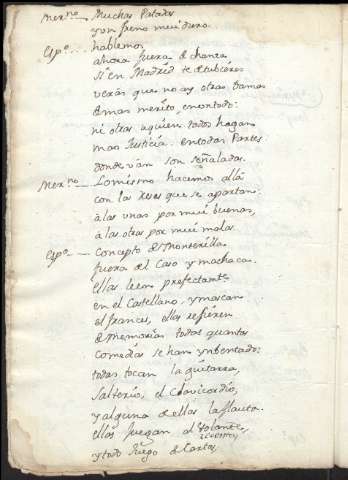 Mer.no — Muchas Patadas
y un freno mui duro.
Esp.o ... hablemos
ahora fuera de chanza
Si en Madrid te detubieres
verás que no ay otras Damas
de mas merito, en un todo:
ni otras a quien todos hagan
mas Justicia. en todas Partes
donde van son señaladas.
Mer.no — Lo mismo hacemos allá
con las reses que se apartan:
à las unas por mui buenas,
à las otras por mui malas.
Esp.o — Concepto de Monterilla
fuera del Caso y machaca.
ellas leen prefectam.te
en el Castellano, y mascan
el frances, ellas refieren
de memoria todas quantas
Comedias se han ynbentado:
todas tocan la guitarra,
Salterio, el Clavicordio,
y alguna de ellas la flauta.
ellas juegan al Volante,
y todo Juego de Cartas,